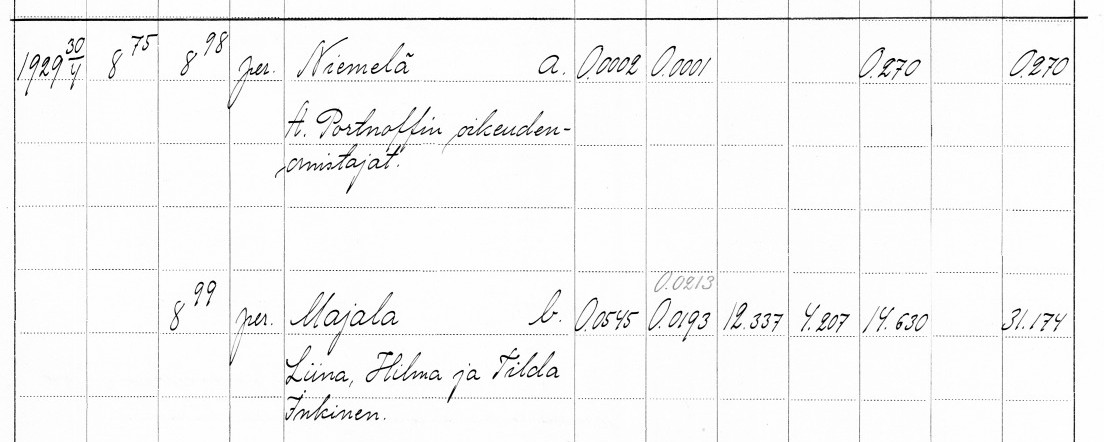 1929 30/4 8 75 8 98 per. Niemelä a. 0.0002 0.0001 0.270 0.270
A. Portnoffin oikeuden-
omistajat.
0.0213
8 99 per. Majala b. 0.0545 0.0193 12.337 4.207 14.630 31.174
Liina, Hilma ja Tilda
Inkinen.